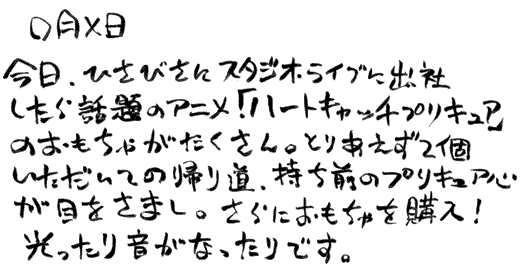 ○月×日
今日、ひさびさにスタジオ・ライブに出社
したら話題のアニメ「ハートキャッチプリキュア」
のおもちゃがたくさん。とりあえず2個
いただいての帰り道、持ち前のプリキュア心
が目をさまし。さらにおもちゃを購入!
光ったり音がなったりです。